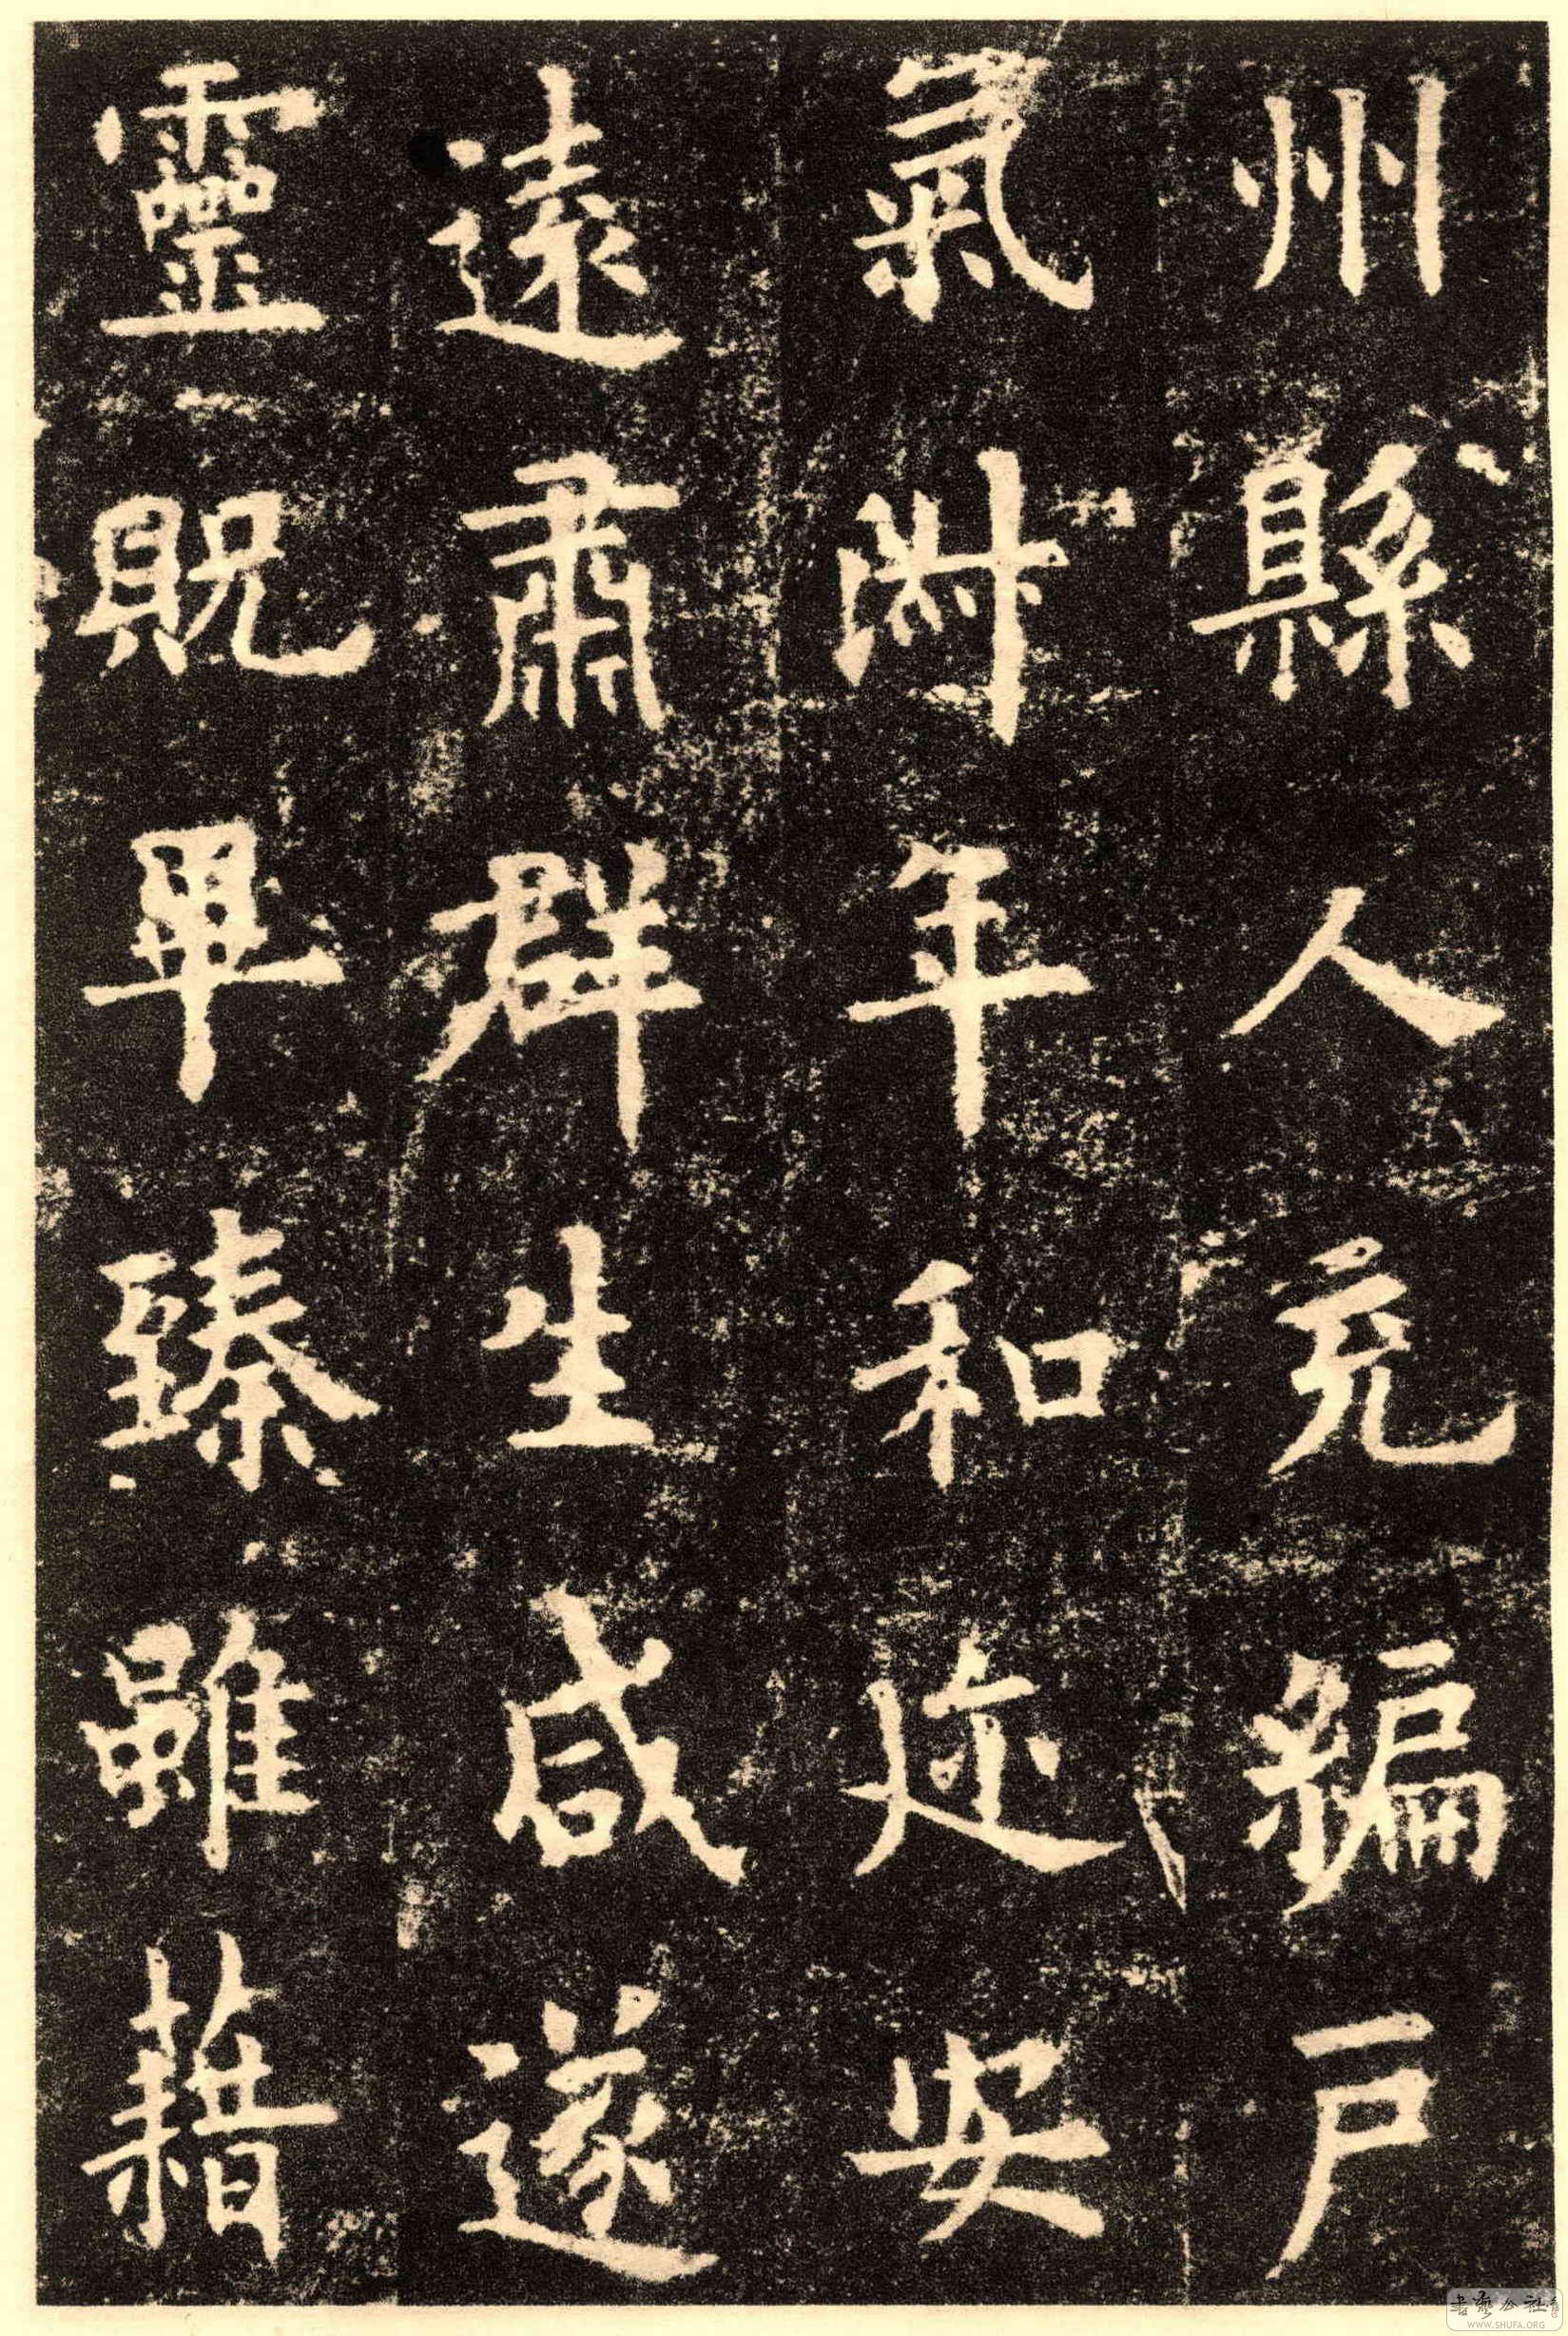 州縣人充編戶
氣淑年和迩安
遠肅群生咸遂
靈貺畢臻雖藉
書藝公社
WWW.SHUFA.ORG